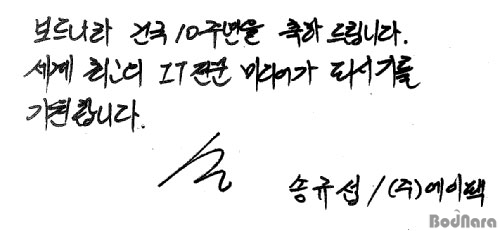 보드나라 건국 10주년을 축하드립니다.
세계 최고의 IT전문 미디어가 되시기를
기원합니다.
송규섭 / (주)에이팩
BodNara